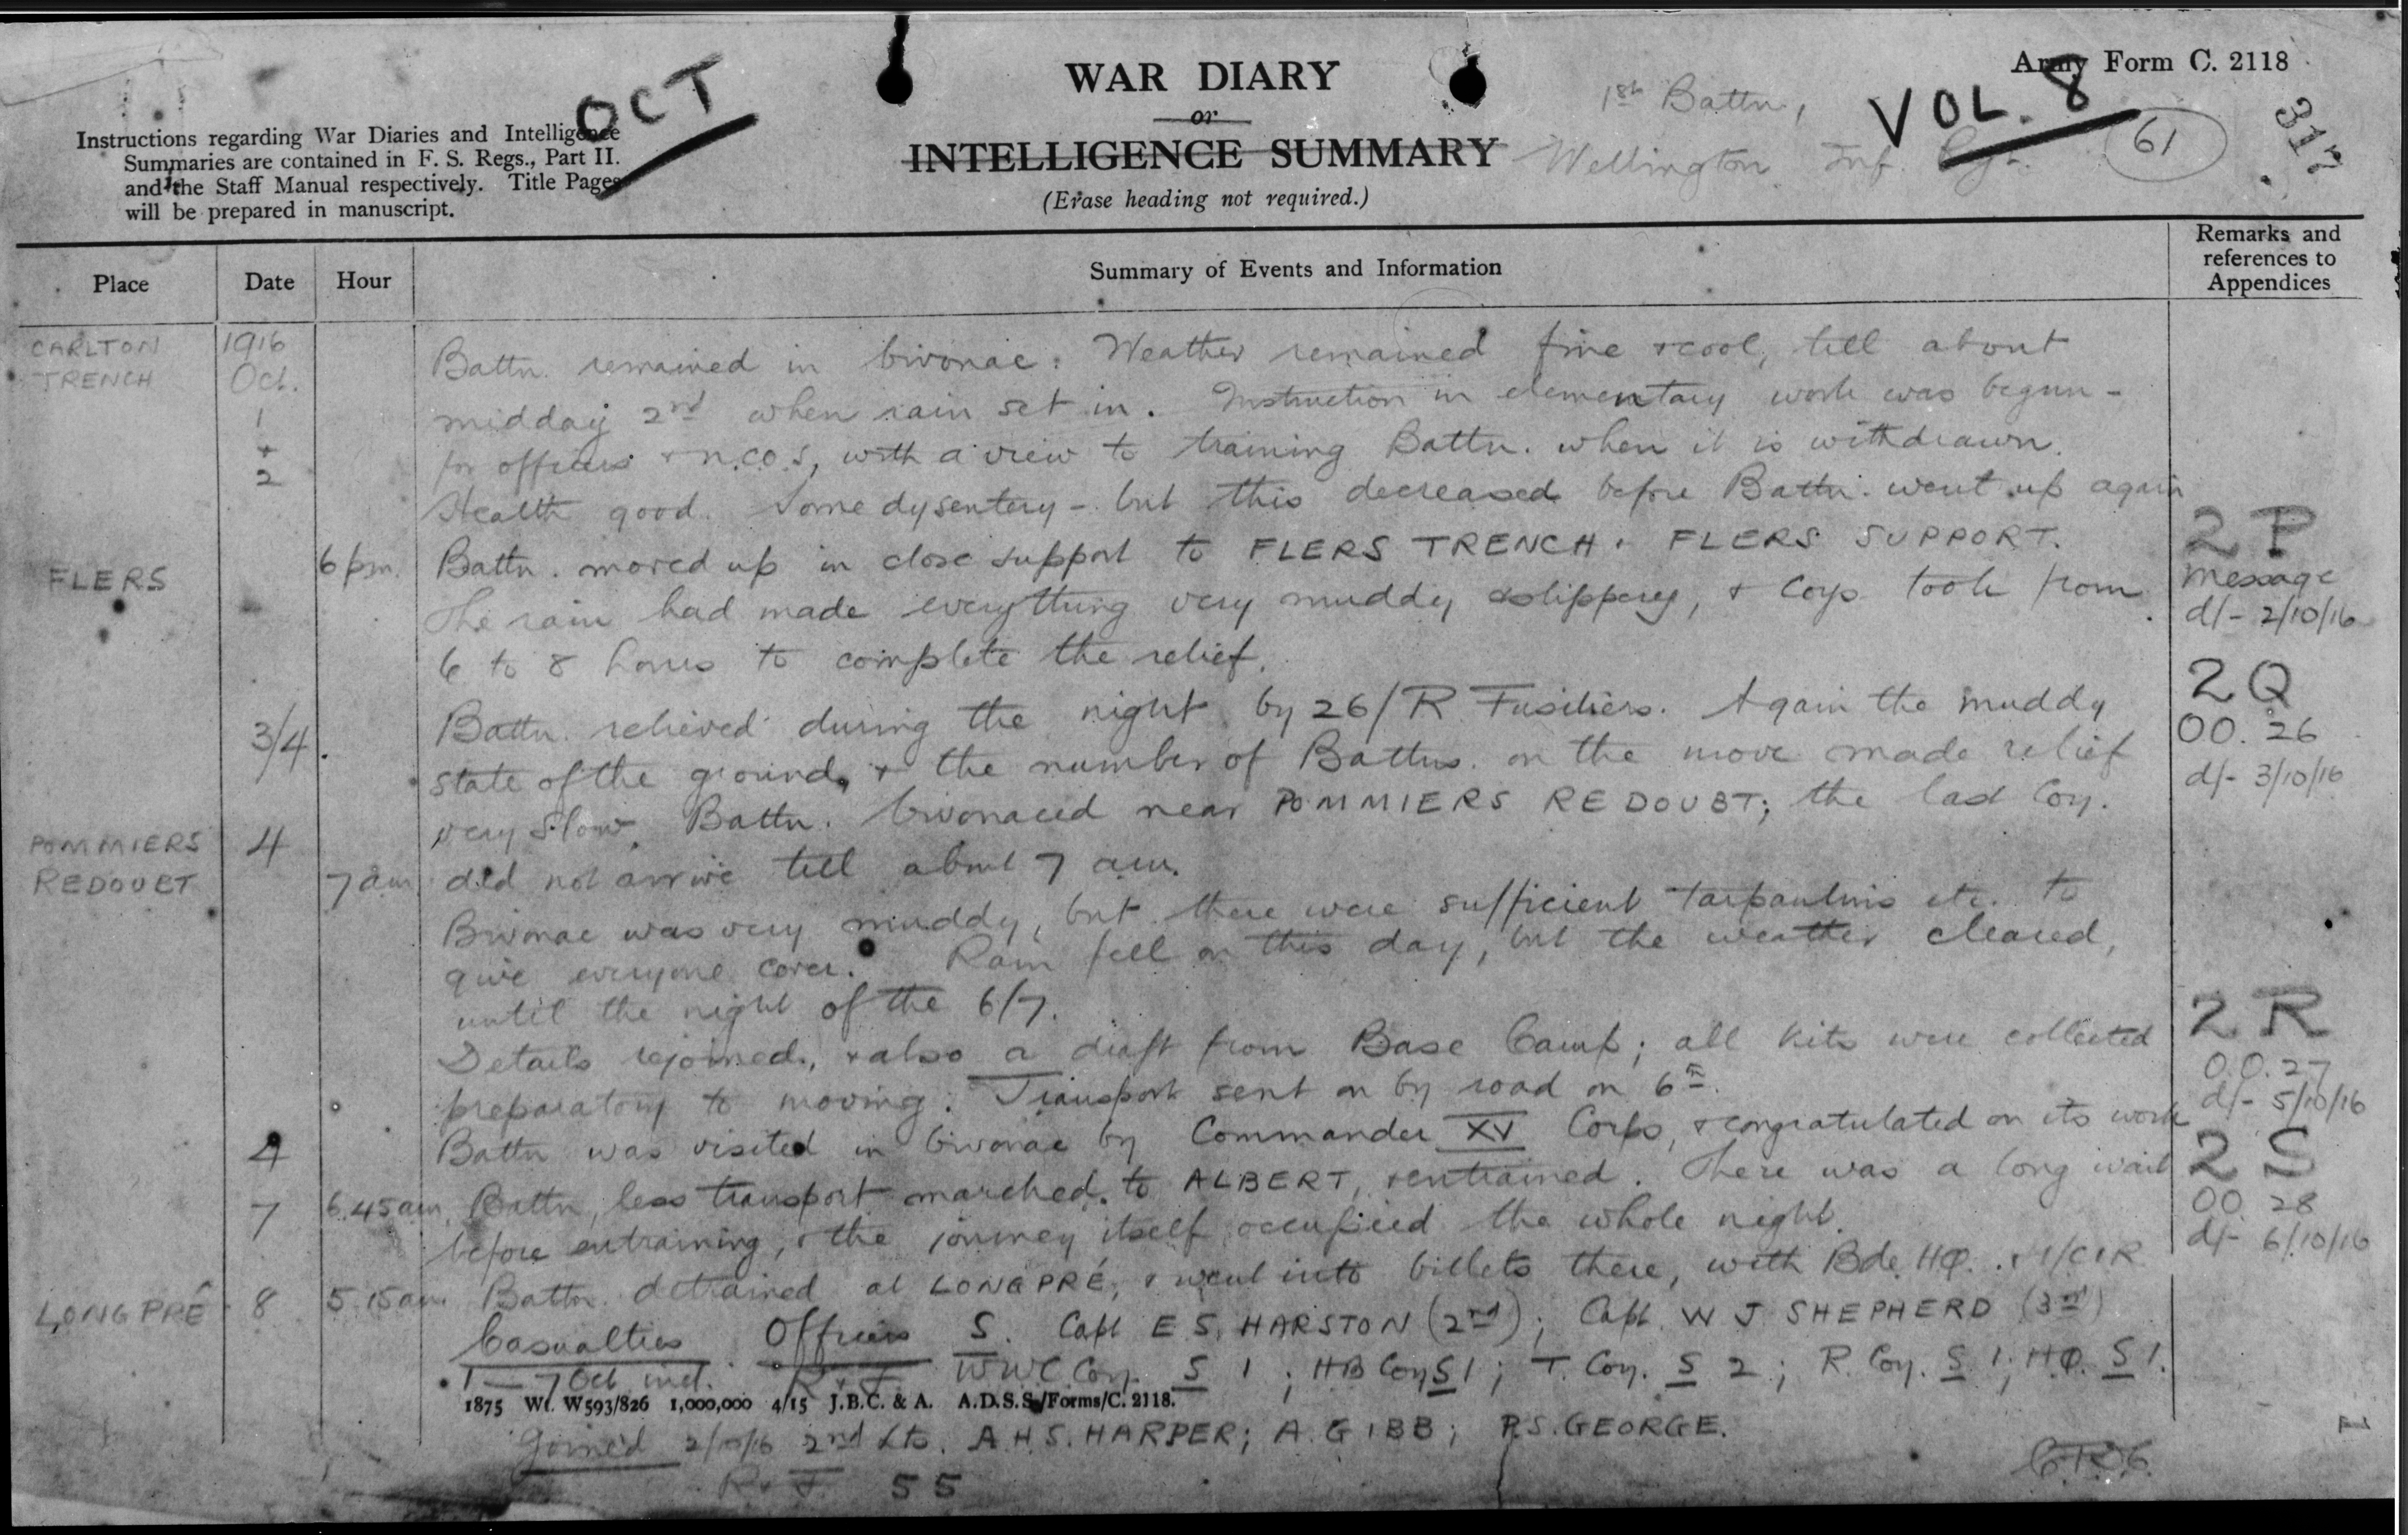 OCT
WAR DIARY
or
INTELLIGENCE SUMMARY
(Erase heading not required.)
Army Form C. 2118
VOL. 8
1st Battn,
Wellington Inf. Rgt.
61
317
Instructions regarding War Diaries and Intelligence
Summaries are contained in F. S. Regs., Part II.
and the Staff Manual respectively. Title Pages
will be prepared in manuscript.
Place Date Hour Summary of Events and Information Remarks and references to Appendices
CARLTON TRENCH 1916 Oct. 1 + 2 Battn. remained in bivouac. Weather remained fine + cool, till about
midday 2nd when rain set in. Instruction in elementary work was begun -
for officers + N.C.O.s, with a view to training Battn. when it is withdrawn.
Health good. Some dysentery - but this decreased before Battn. went up again
FLERS 6 pm. Battn. moved up in close support to FLERS TRENCH + FLERS SUPPORT. 2P
The rain had made everything very muddy + slippery, + Coys. took from message d/- 2/10/16
6 to 8 hours to complete the relief.
3/4. Battn. relieved during the night by 26/R. Fusiliers. Again the muddy 2Q
state of the ground, + the number of Battns. on the move made relief OO. 26 d/- 3/10/16
very slow. Battn. bivouaced near POMMIERS REDOUBT; the last Coy.
POMMIERS REDOUBT 4 7 am did not arrive till about 7 am.
Bivouac was very muddy, but there were sufficient tarpaulins etc. to
give everyone cover. Rain fell on this day, but the weather cleared,
until the night of the 6/7.
Details rejoined, + also a draft from Base Camp; all kits were collected 2R
preparatory to moving. Transport sent on by road on 6th. O.O. 27 d/- 5/10/16
4 Battn was visited in bivouac by Commander XV Corps, + congratulated on its work
7 6.45 am Battn, less transport marched to ALBERT, + entrained. There was a long wait 2S
before entraining, + the journey itself occupied the whole night. OO. 28 d/- 6/10/16
LONGPRÉ 8 5.15 am Battn. detrained at LONGPRÉ, + went into billets there, with Bde. HQ. + 1/CIR
Casualties Officers S. Capt E S. HARSTON (2nd); Capt. W J SHEPHERD (3rd)
1 - 7 Oct incl. R + F WWC Coy. S 1; HB Coy S 1; T. Coy. S 2; R. Coy. S 1; HQ. S 1.
1875 Wt. W593/826 1,000,000 4/15 J.B.C. & A. A.D.S.S./Forms/C. 2118.
Joined 2/10/16 2nd Lts. A.H.S. HARPER; A. GIBB; P.S. GEORGE.
R + F. 55